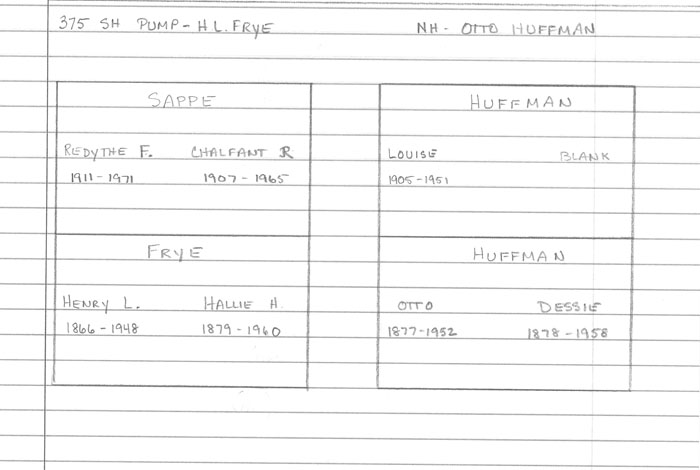 375 SH PUMP - H L. FRYE NH - OTTO HUFFMAN
SAPPE HUFFMAN
REDYTHE F. CHALFANT R LOUISE BLANK
1911 - 1971 1907 - 1965 1905 - 1951
FRYE HUFFMAN
HENRY L. HALLIE H. OTTO DESSIE
1866 - 1948 1879 - 1960 1877 - 1952 1878 - 1958